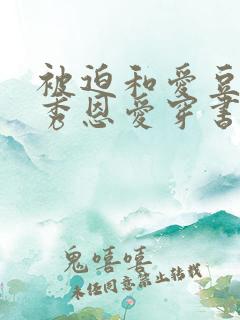 被迫和爱豆
秀恩爱穿书
鬼嘻嘻
未经同意禁止转载